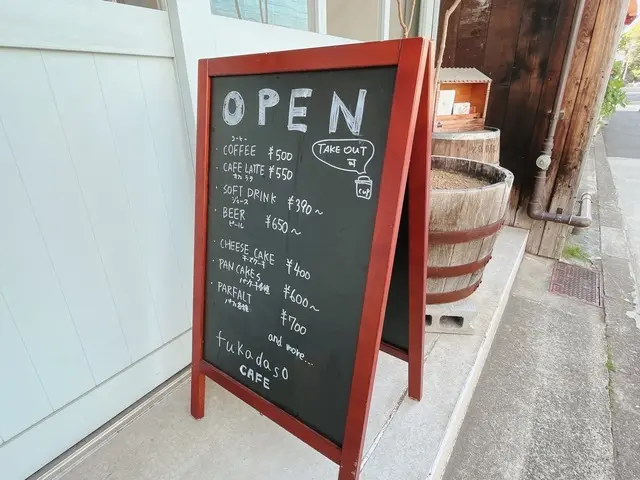 OPEN
コーヒー
COFFEE ¥500
TAKE OUT
可
CUP
CAFE LATTE ¥550
カフェラテ
SOFT DRINK ¥390~
ジュース
BEER ¥650~
ビール
CHEESE CAKE ¥400
チーズケーキ
PANCAKES ¥600~
パンケーキ各種
PARFALT ¥700
パフェ各種
and more...
fukadaso
CAFE